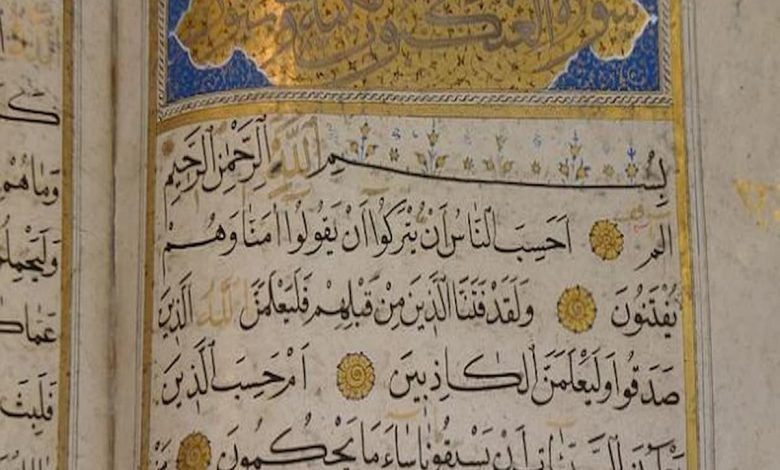 سورة العنكبوت وستون
بِسْمِ اللَّهِ الرَّحْمٰنِ الرَّحِيمِ
الم اَحَسِبَ النَّاسُ اَنْ يُتْرَكُوا اَنْ يَقُولُوا اٰمَنَّا وَهُمْ
يُفْتَنُونَ وَلَقَدْ فَتَنَّا الَّذِينَ مِنْ قَبْلِهِمْ فَلَيَعْلَمَنَّ اللَّهُ الَّذِينَ
صَدَقُوا وَلَيَعْلَمَنَّ الْكَاذِبِينَ اَمْ حَسِبَ الَّذِينَ
السَّيِّئَاتِ اَنْ يَسْبِقُونَا سَاءَ مَا يَحْكُمُونَ مَنْ
وَمَا هُمْ
عَمَّا
فَلَبِثَ